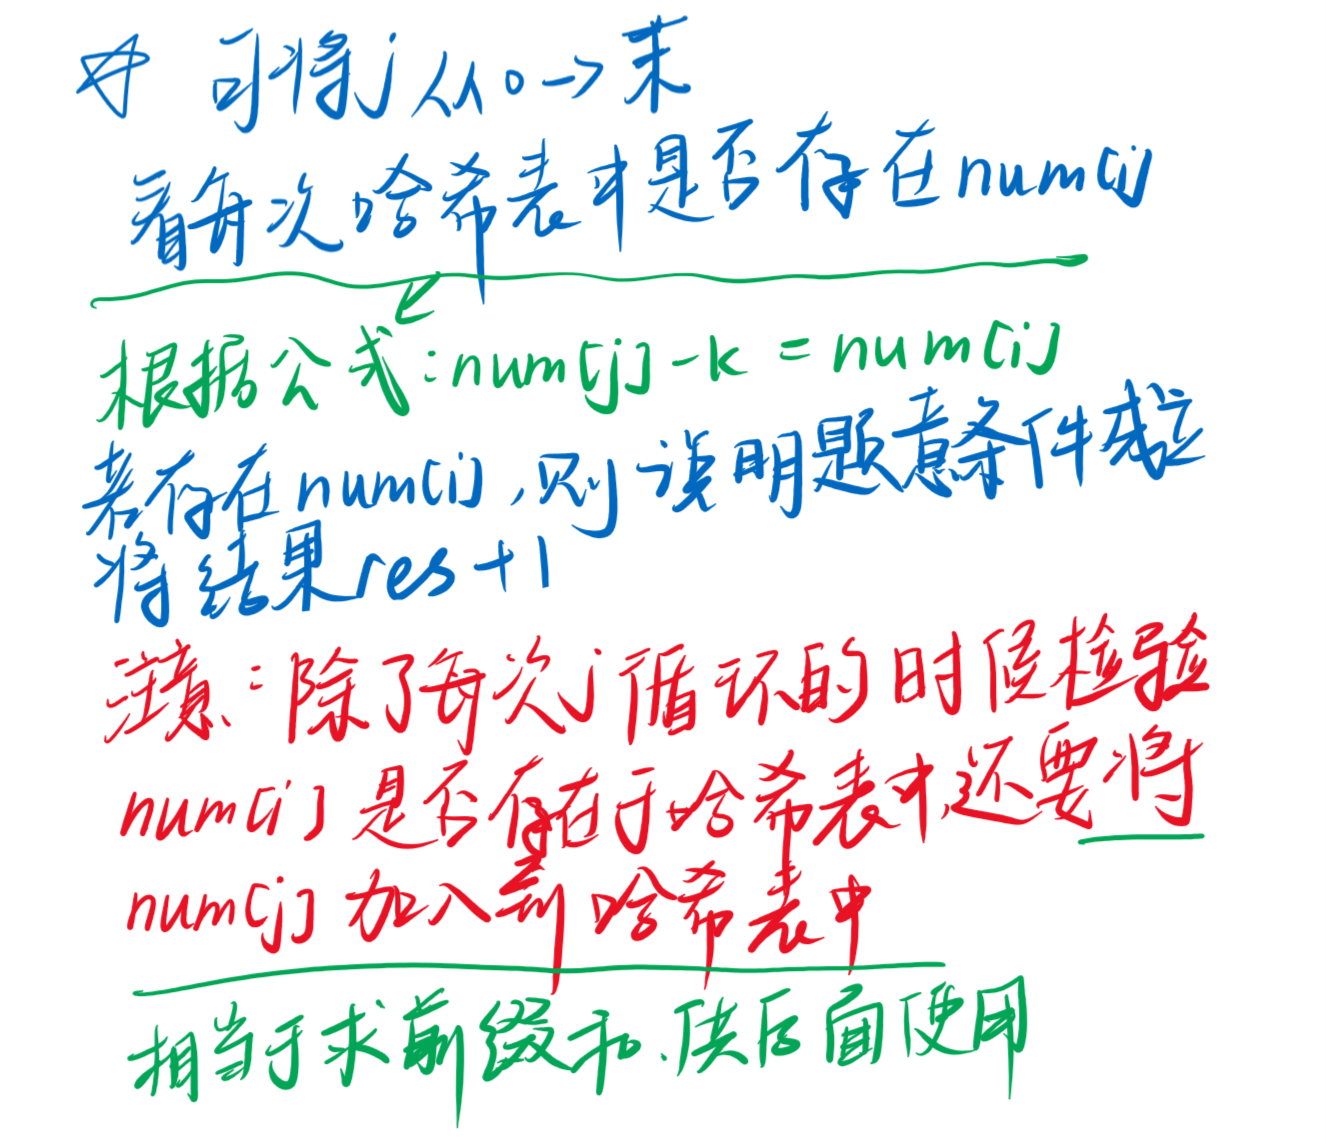 ☆ 可将j从0→末
看每次哈希表中是否存在num[i]
根据公式:num[j]-k=num[i]
若存在num[i],则说明题意条件成立
将结果res+1
注意:除了每次j循环的时候检验
num[i]是否存在于哈希表中,还要将
num[j]加入到哈希表中
相当于求前缀和.供后面使用